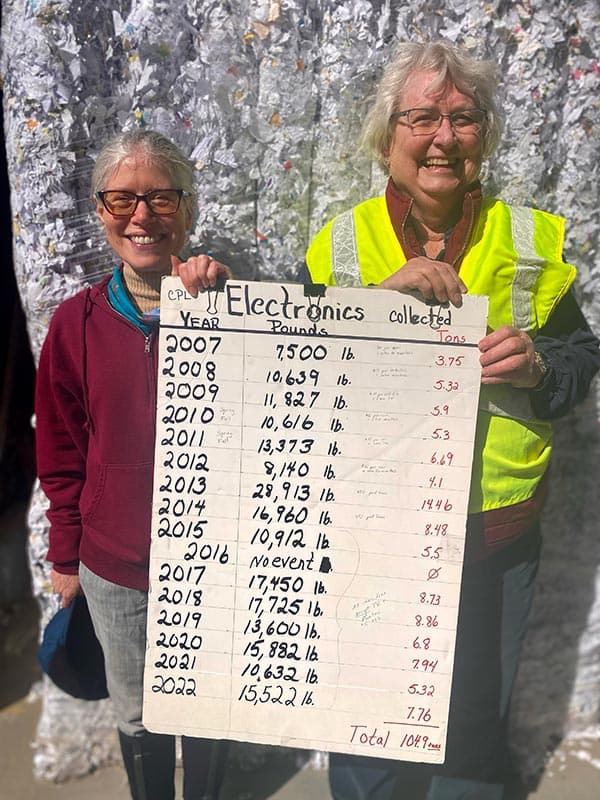 CPL Electronics Collected
YEAR Pounds Tons
2007 7,500 lb. 3.75
2008 10,639 lb. 5.32
2009 11,827 lb. 5.9
2010 Spring Fall 10,616 lb. 5.3
2011 Spring Fall 13,373 lb. 6.69
2012 8,140 lb. 4.1
2013 28,913 lb. 14.46
2014 16,960 lb. 8.48
2015 10,912 lb. 5.5
2016 No event Ø
2017 17,450 lb. 8.73
2018 17,725 lb. 8.86
2019 13,600 lb. 6.8
2020 15,882 lb. 7.94
2021 10,632 lb. 5.32
2022 15,522 lb. 7.76
Total 104.9 tons